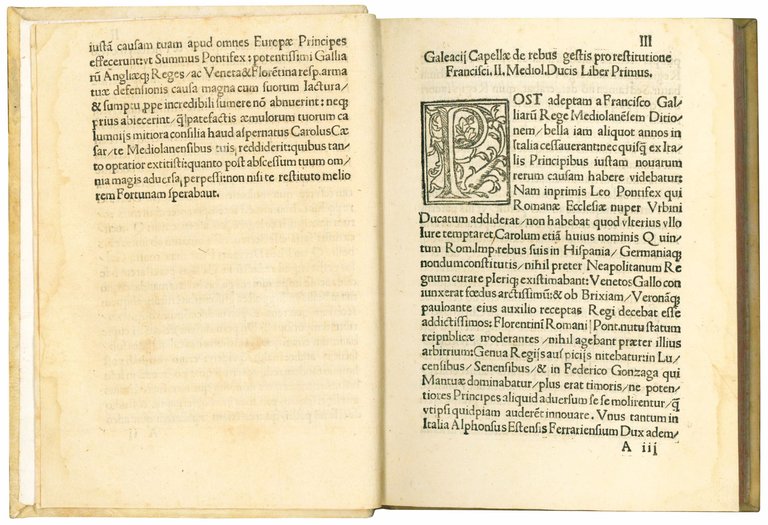 iustã causam tuam apud omnes Europæ Principes
effecerunt: vt Summus Pontifex: potentissimi Gallia
rũ Angliæq; Reges / ac Veneta & Florẽtina resp. arma
tuæ defensionis causa magna cum suorum Iactura /
& sumptu, ppe incredibili sumere nõ abnuerint: neq;
prius abiecerint / q̃ patefactis æmulorum tuorum ca
lumnijs mitiora consilia haud aspernatus Carolus Cæ
sar / te Mediolanensibus tuis, reddiderit: quibus tan
to optatior extitisti: quanto post abscessum tuum om /
nia magis aduersa, perpessi: non nisi te restituto melio
rem Fortunam sperabaut.
III
Galeacij Capellæ de rebus gestis pro restitutione
Francisci. II. Mediol. Ducis Liber Primus.
POST adeptam a Francisco Gal /
liarũ Rege Mediolanẽsem Ditio
nem / bella iam aliquot annos in
Italia cessauerant: nec quisq̃ ex Ita
lis Principibus iustam nouarum
rerum causam habere videbatur:
Nam inprimis Leo Pontifex qui
Romanæ Ecclesiæ nuper Vrbini
Ducatum addiderat / non habebat quod vlterius vllo
Iure temptaret, Carolum etiã huius nominis Quin
tum Rom. Imp. rebus suis in Hispania / Germaniaq;
nondum constitutis / nihil preter Neapolitanum Re
gnum curare pleriq; existimabant: Venetos Gallo con
iunxerat fœdus arctissimũ: & ob Brixiam / Veronãq;
pauloante eius auxilio receptas Regi decebat esse
addictissimos: Florentini Romani Pont. nutu statum
reipnblicæ moderantes / nihil agebant præter illius
arbitrium: Genua Regijs auspicijs nitebatur: in Lu /
censibus / Senensibus / & in Federico Gonzaga qui
Mantuæ dominabatur / plus erat timoris / ne poten /
tiores Principes aliquid aduersum se se molirentur / q̃
vt ipsi quidpiam auderẽt innouare. Vnus tantum in
Italia Alphonsus Estensis Ferrariensium Dux adem /
A iij